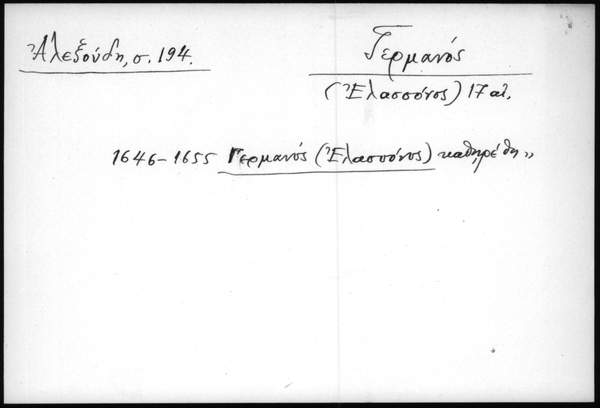 Ἀλεξούδη, σ. 194.
Γερμανός
(Ἐλασσόνος) 17 αἰ.
1646-1655 Γερμανός (Ἐλασσόνος) καθηρέθη »